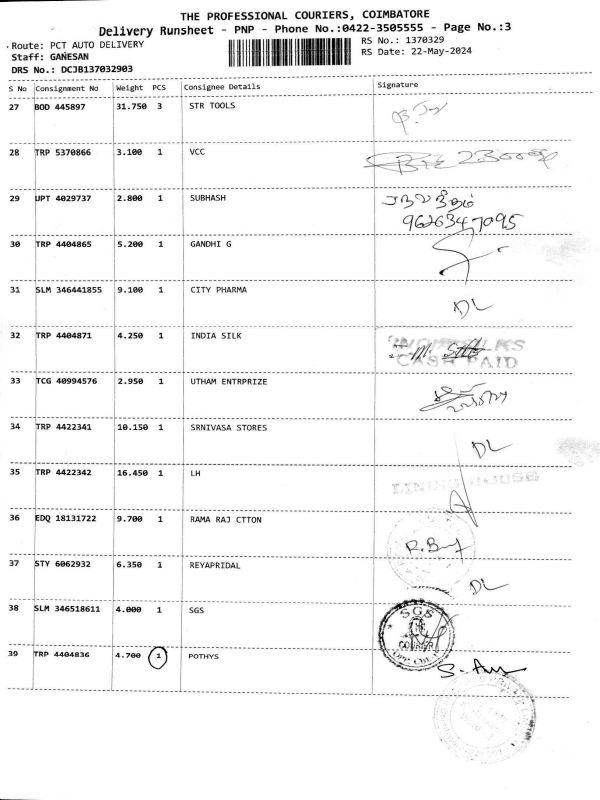 THE PROFESSIONAL COURIERS, COIMBATORE
Delivery Runsheet - PNP - Phone No.:0422-3505555 - Page No.:3
Route: PCT AUTO DELIVERY
RS No.: 1370329
Staff: GANESAN
RS Date: 22-May-2024
DRS No.: DCJB137032903
S No Consignment No Weight PCS Consignee Details Signature
27 BOD 445897 31.750 3 STR TOOLS
28 TRP 5370866 3.100 1 VCC
29 UPT 4029737 2.800 1 SUBHASH
9626347095
30 TRP 4404865 5.200 1 GANDHI G
31 SLM 346441855 9.100 1 CITY PHARMA
DL
32 TRP 4404871 4.250 1 INDIA SILK
CASH PAID
33 TCG 40994576 2.950 1 UTHAM ENTRPRIZE
34 TRP 4422341 10.150 1 SRNIVASA STORES
DL
35 TRP 4422342 16.450 1 LH
LINING HOUSE
36 EDQ 18131722 9.700 1 RAMA RAJ CTTON
37 STY 6062932 6.350 1 REYAPRIDAL
DL
38 SLM 346518611 4.000 1 SGS
SGS
COURIER
39 TRP 4404836 4.700 1 POTHYS